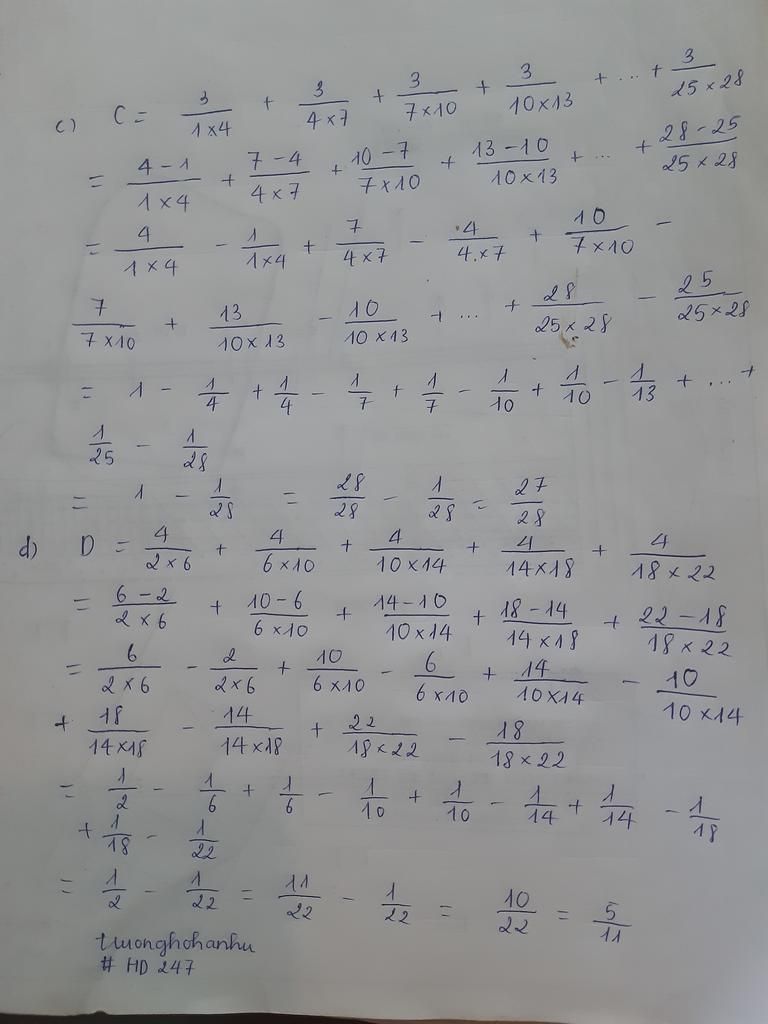 c) C = 3/(1×4) + 3/(4×7) + 3/(7×10) + 3/(10×13) + ... + 3/(25×28)
= (4-1)/(1×4) + (7-4)/(4×7) + (10-7)/(7×10) + (13-10)/(10×13) + ... + (28-25)/(25×28)
= 4/(1×4) - 1/(1×4) + 7/(4×7) - 4/(4×7) + 10/(7×10) -
7/(7×10) + 13/(10×13) - 10/(10×13) + ... + 28/(25×28) - 25/(25×28)
= 1 - 1/4 + 1/4 - 1/7 + 1/7 - 1/10 + 1/10 - 1/13 + ... +
1/25 - 1/28
= 1 - 1/28 = 28/28 - 1/28 = 27/28
d) D = 4/(2×6) + 4/(6×10) + 4/(10×14) + 4/(14×18) + 4/(18×22)
= (6-2)/(2×6) + (10-6)/(6×10) + (14-10)/(10×14) + (18-14)/(14×18) + (22-18)/(18×22)
= 6/(2×6) - 2/(2×6) + 10/(6×10) - 6/(6×10) + 14/(10×14) - 10/(10×14)
+ 18/(14×18) - 14/(14×18) + 22/(18×22) - 18/(18×22)
= 1/2 - 1/6 + 1/6 - 1/10 + 1/10 - 1/14 + 1/14 - 1/18
+ 1/18 - 1/22
= 1/2 - 1/22 = 11/22 - 1/22 = 10/22 = 5/11
truonghohanhu
# HD 247